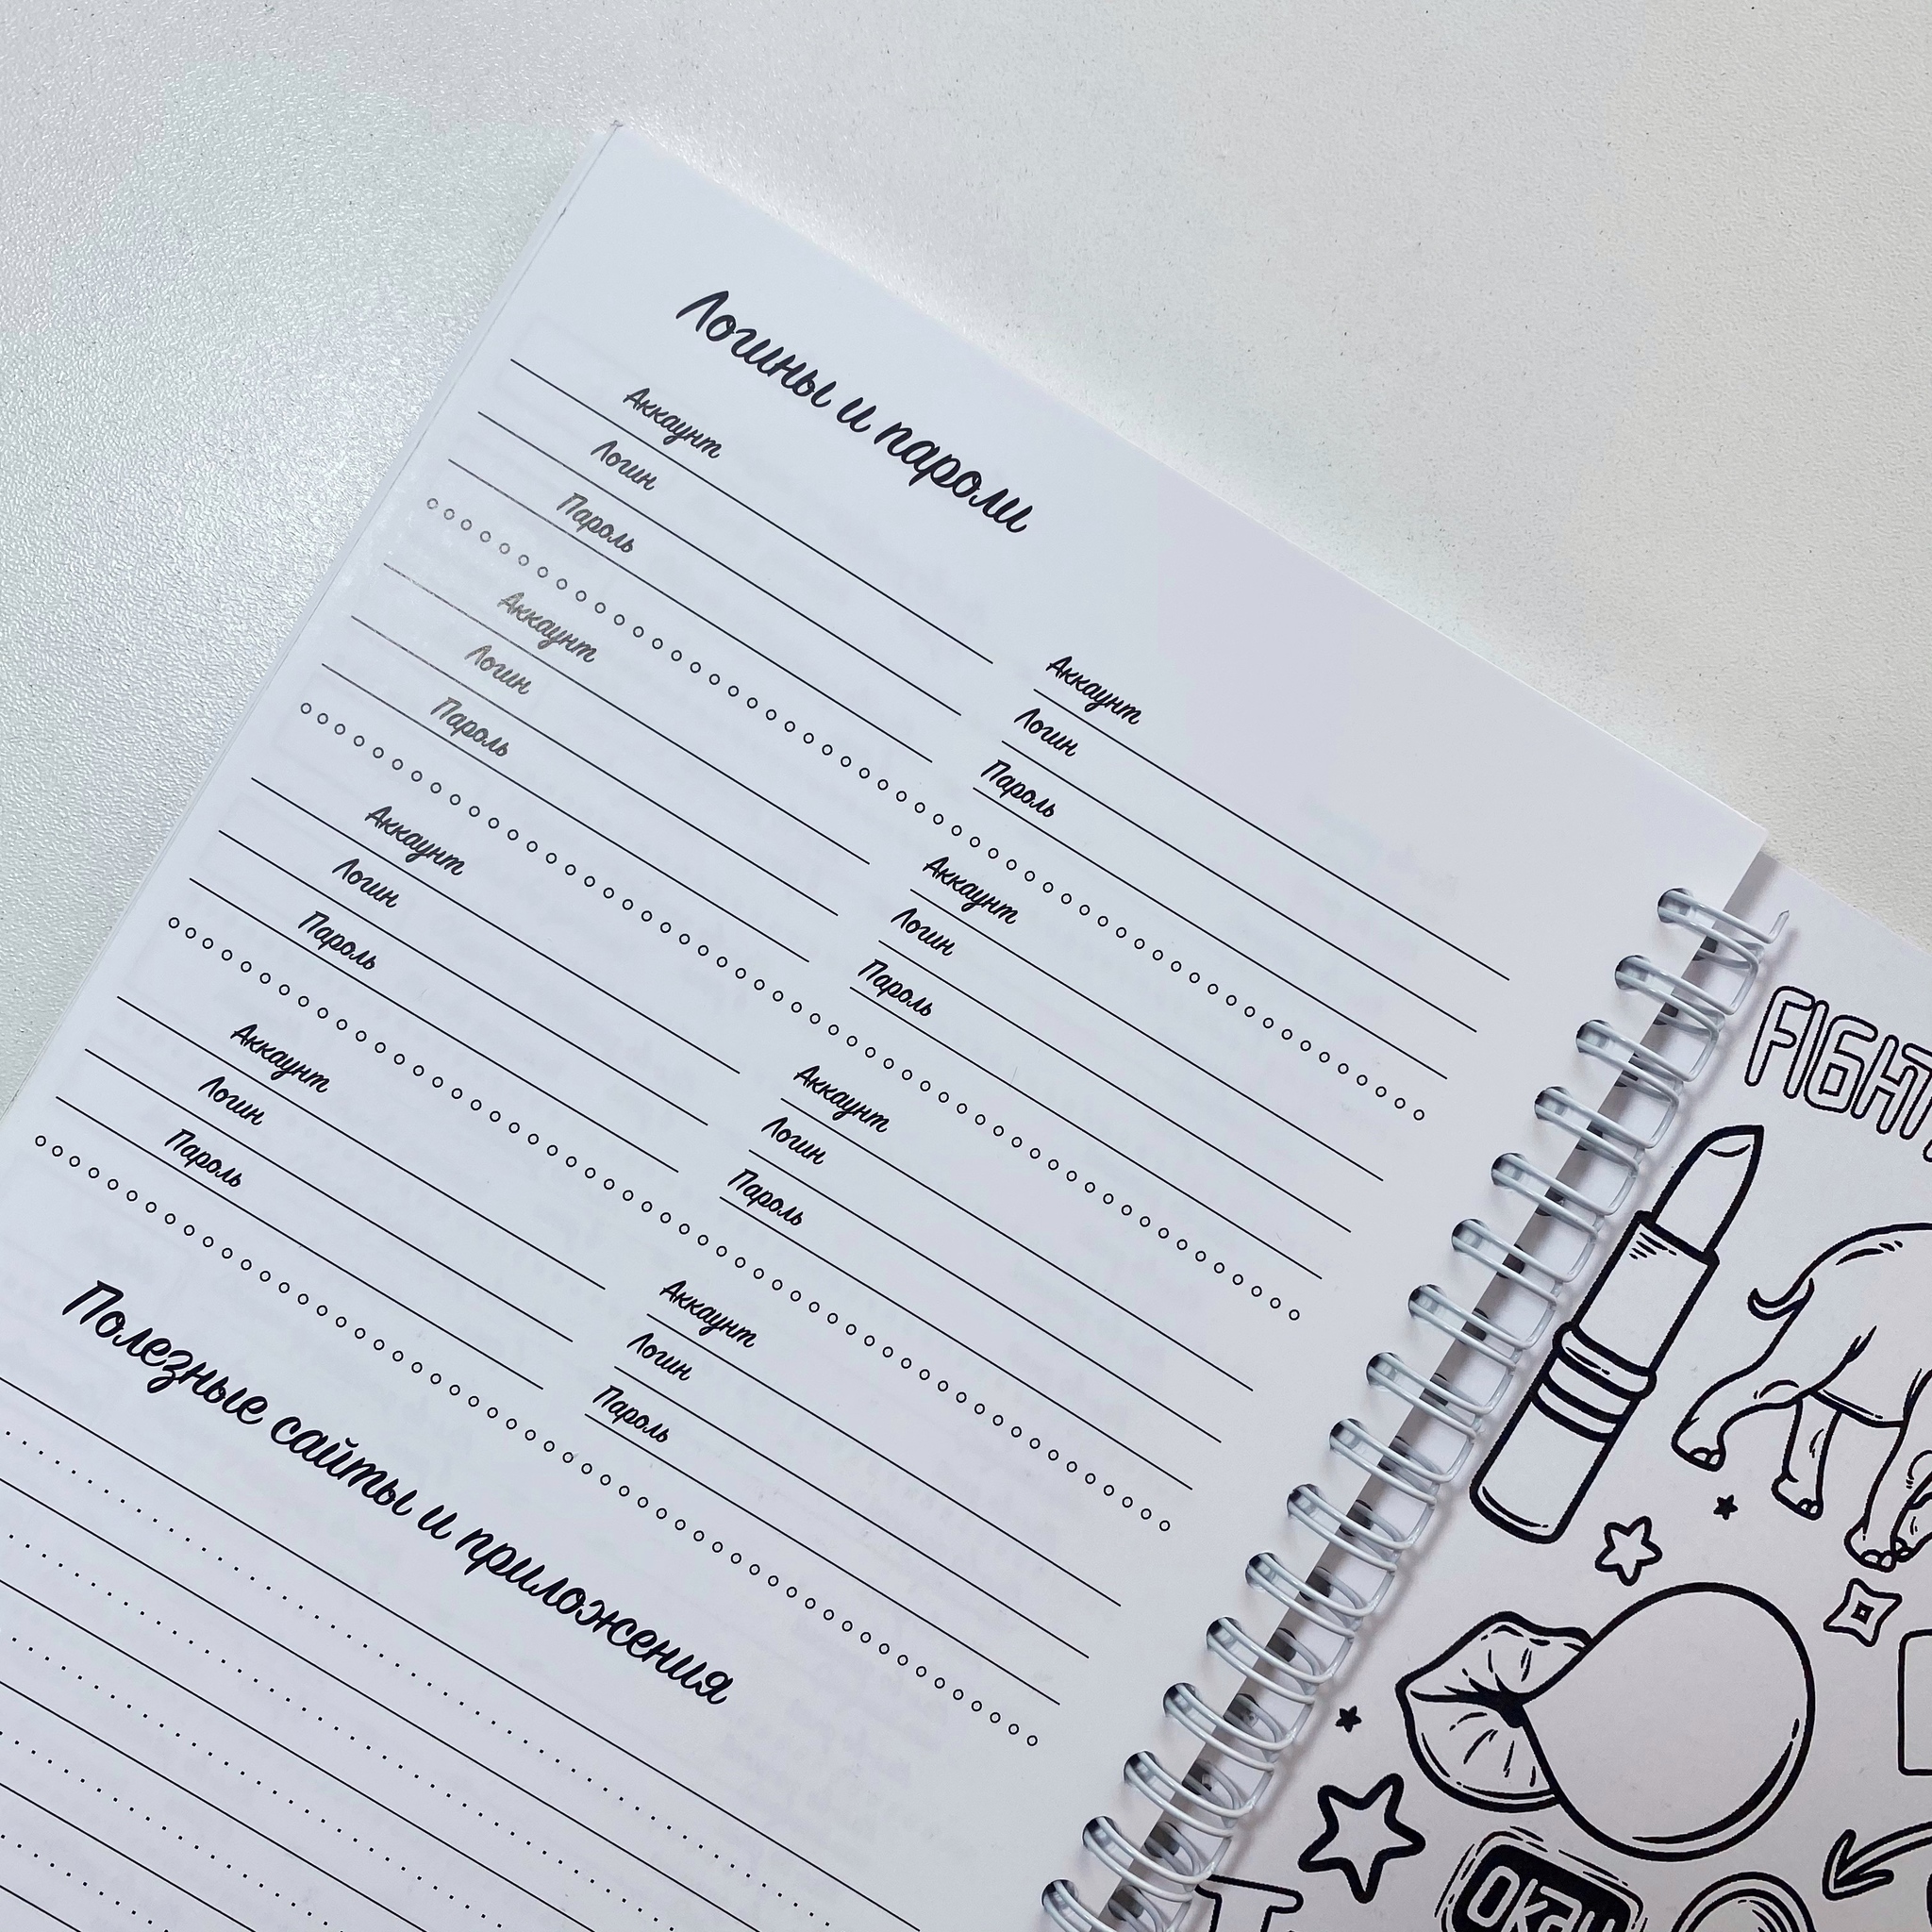 Логины и пароли
Аккаунт Аккаунт
Логин Логин
Пароль Пароль
Аккаунт Аккаунт
Логин Логин
Пароль Пароль
Аккаунт Аккаунт
Логин Логин
Пароль Пароль
Аккаунт Аккаунт
Логин Логин
Пароль Пароль
Полезные сайты и приложения
FIGHT
Okay